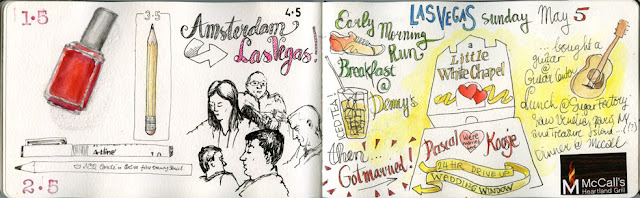 1.5
3.5
4.5
Amsterdam
Las Vegas!
Artline
2.5
LAS VEGAS sunday May 5
Early Morning
Run
Breakfast
@
Denny's
ICETEA
then:
Got married!
a
Little
White Chapel
Pascal
were
Kooje
24 HR DRIVE UP
WEDDING WINDOW
... bought a
guitar
@
Guitar Center
Lunch @ Sugar Factory
Saw Venetie, Paris, NY
and Treasure Island
Dinner @ McCall
M McCall's
Heartland Grill